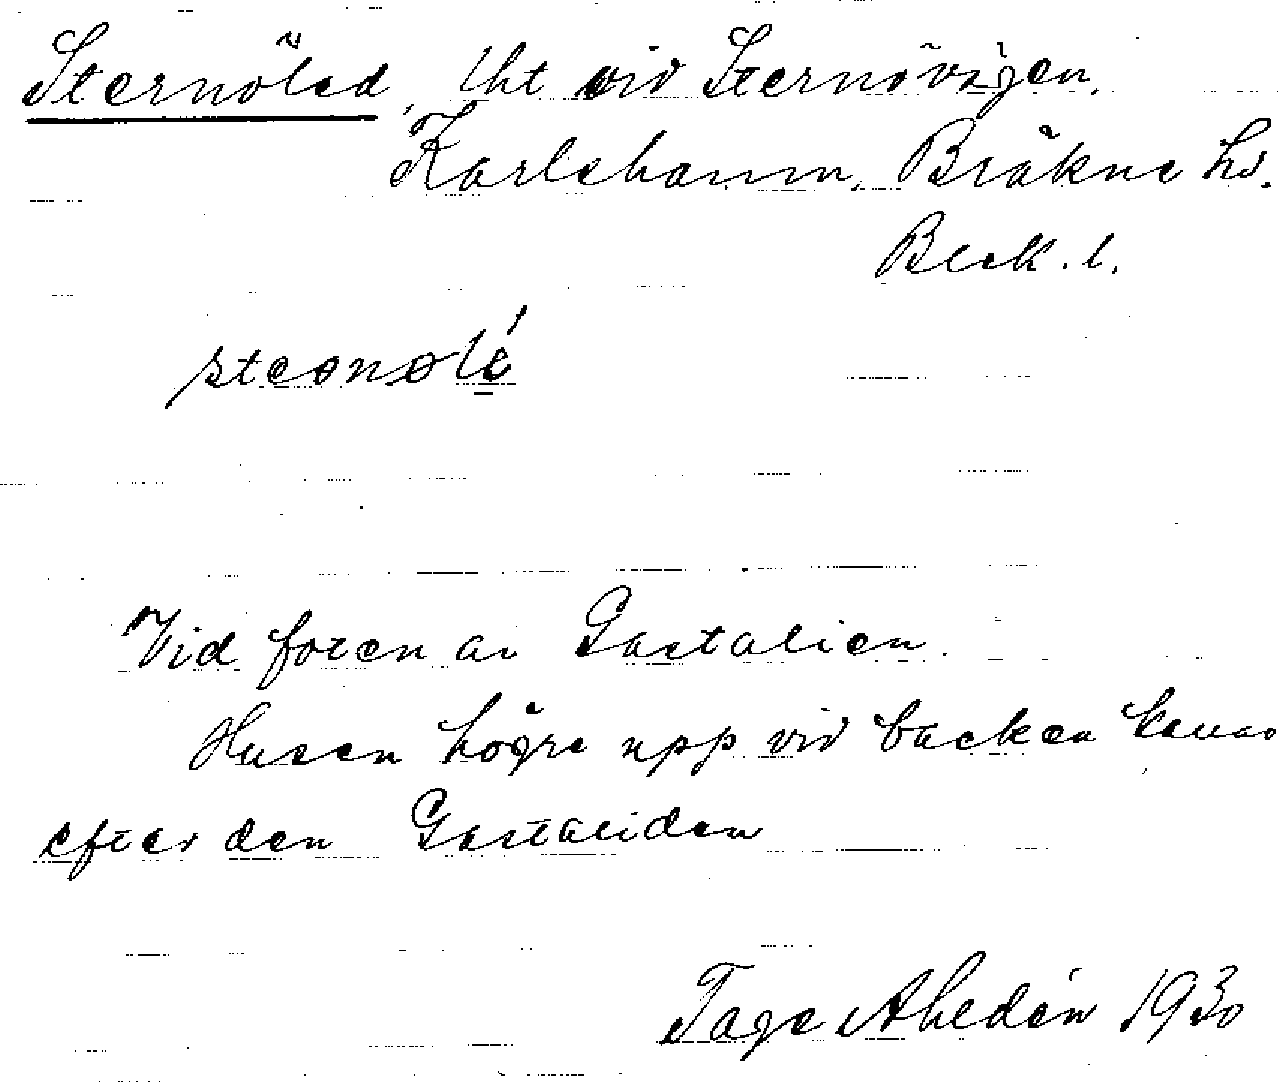 Sternöled, Uht vid Sternövägen,
Karlshamn, Bräkne hd.
Blek. l.
Vid foten av Gastalien.
Husen högre upp vid bäcken kallas
efter den Gastaliden
Tage Ahldén 1930